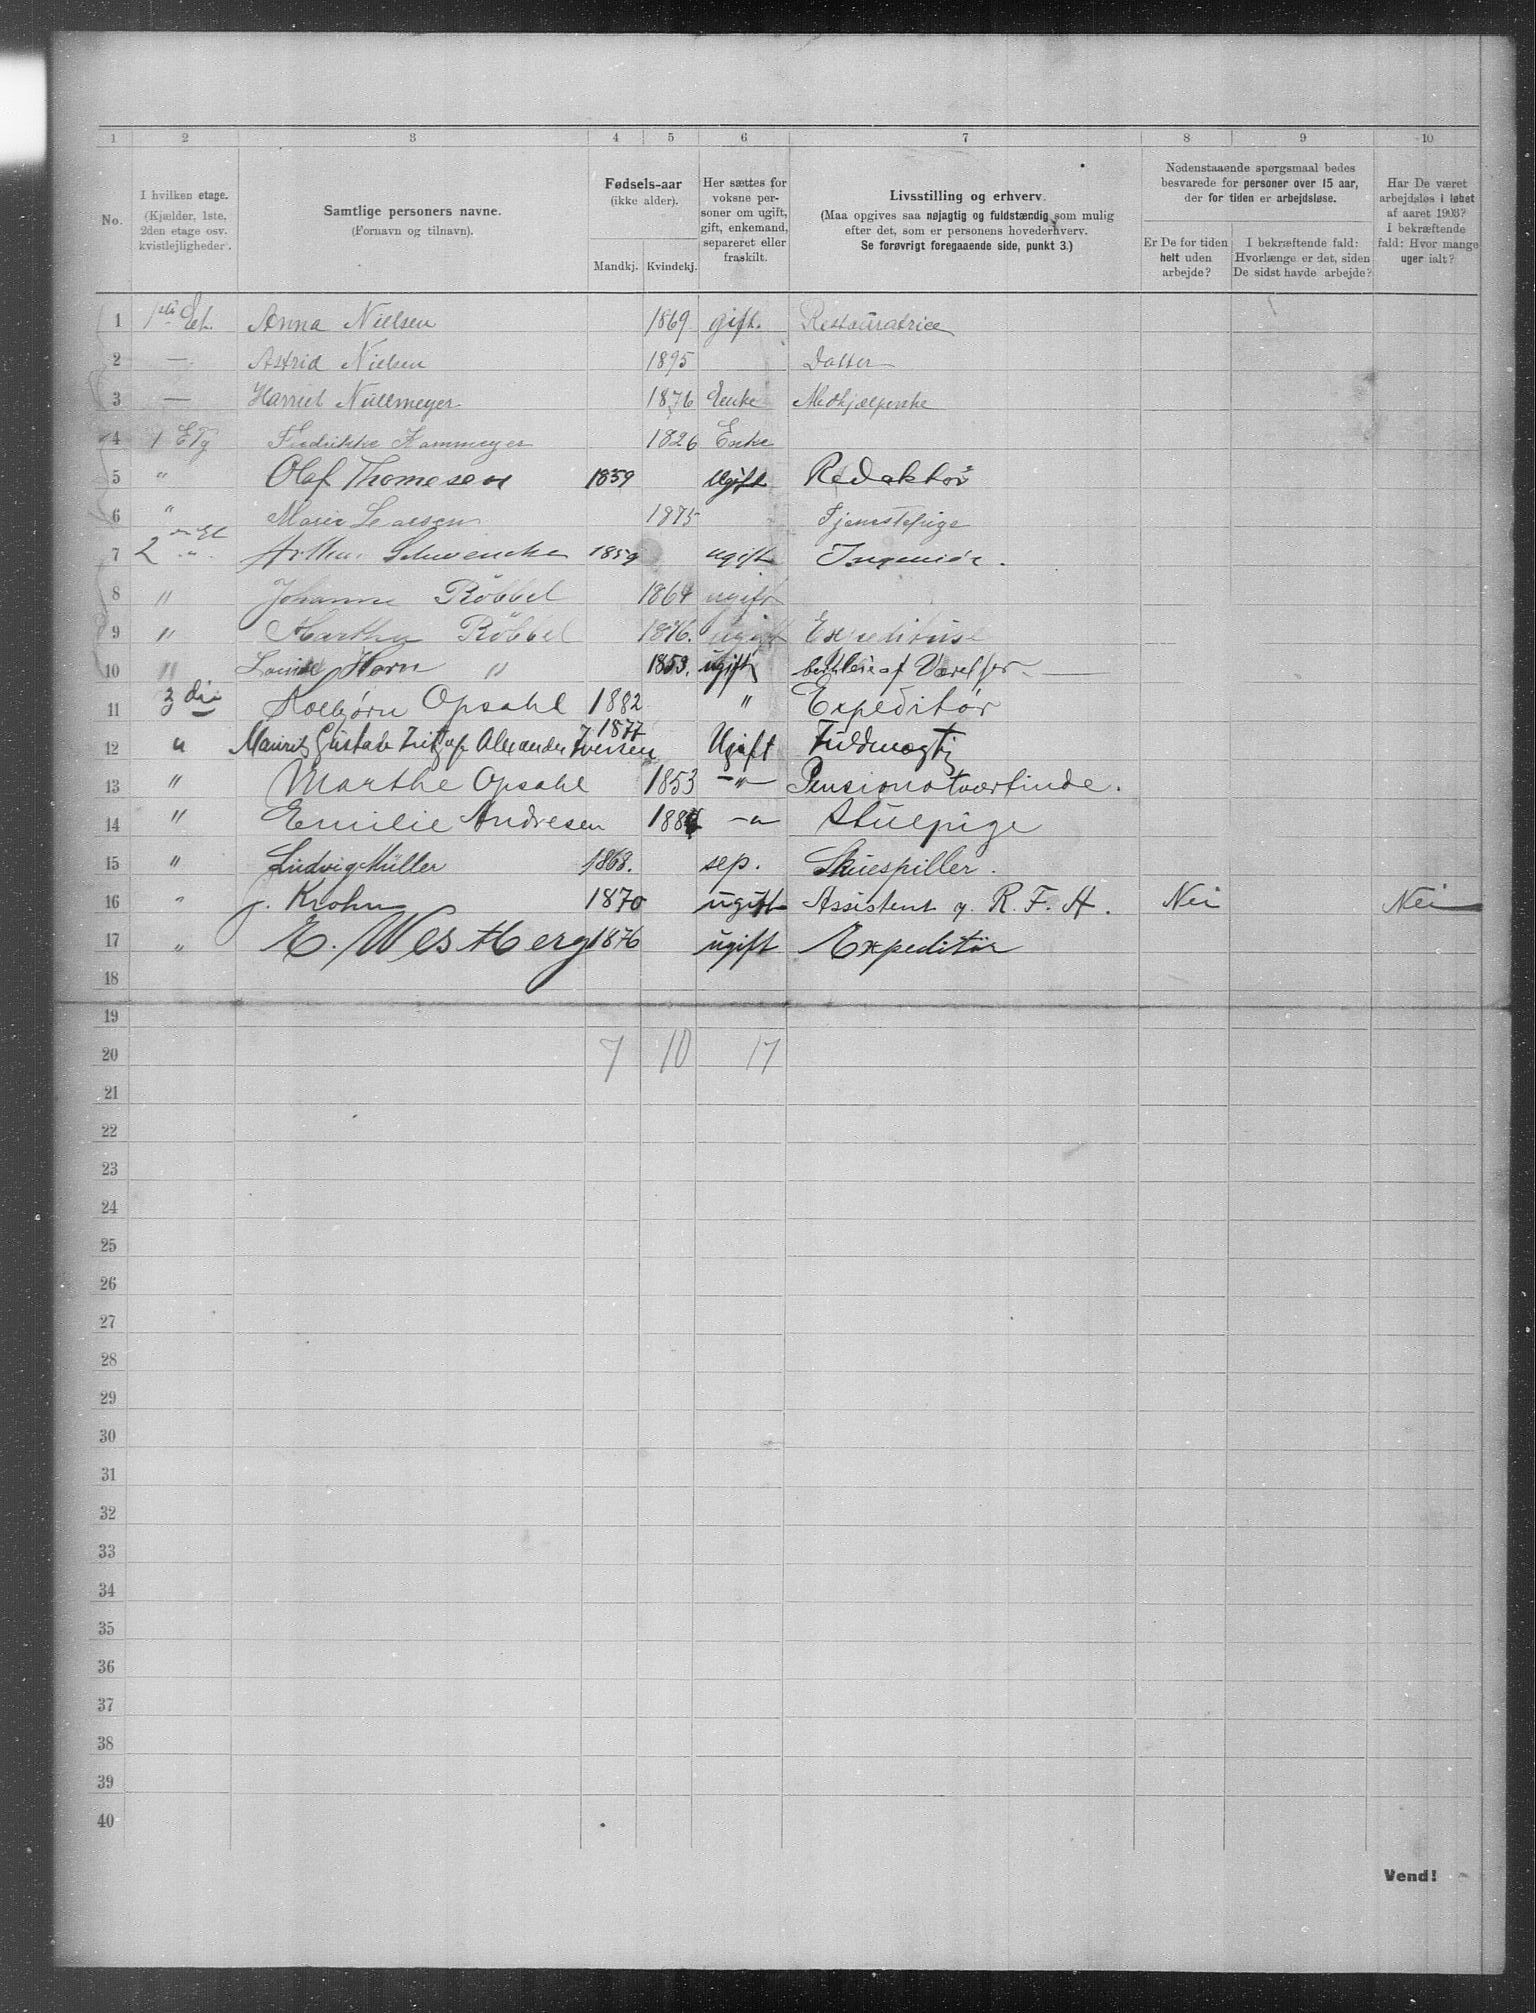 1 2 3 4 5 6 7 8 9 10
No.
I hvilken etage. (Kjælder, 1ste, 2den etage osv. kvistlejligheder).
Samtlige personers navne. (Fornavn og tilnavn).
Fødsels-aar (ikke alder).
Mandkj. Kvindekj.
Her sættes for voksne personer om ugift, gift, enkemand, separeret eller fraskilt.
Livsstilling og erhverv. (Maa opgives saa nøjagtig og fuldstændig som mulig efter det, som er personens hovederhverv. Se forøvrigt foregaaende side, punkt 3.)
Nedenstaaende spørgsmaal bedes besvarede for personer over 15 aar, der for tiden er arbejdsløse.
Er De for tiden helt uden arbejde?
I bekræftende fald: Hvorlænge er det, siden De sidst havde arbejde?
Har De været arbejdsløs i løbet af aaret 1903? I bekræftende fald: Hvor mange uger ialt?
1 1ste Et. Anna Nielsen 1869 gift. Restauratrice
2 — Astrid Nielsen 1895 Datter
3 — Harriet 1876 Enke Medhjælperske
4 1 Etg Fredrikke Kammeyer 1826 Enke
5 " Olaf Thomesen 1859 Ugift Redaktør
6 " Marie Larsen 1875 Tjenestepige
7 2 " Arthur Schwencke 1859 ugift Ingeniør.
8 " Johanne Röbbel 1864 ugift
9 " Martha Röbbel 1876. ugift Expeditrise
10 " Louise Horn " 1853. ugift af Værelser
11 3die Kolbjørn Opsahl 1882 " Expeditør
12 " Mauritz Gustav Alexander Iversen 1877 Ugift Fuldmægtig
13 " Marthe Opsahl 1853 —"— Pensionatværtinde.
14 " Emilie Andresen 188 —" Stuepige
15 " Ludvig Müller 1868. sep. Skuespiller.
16 " J. Krohn 1870 ugift Assistent v. R. F. A. Nei Nei
17 " E. Westberg 1876 ugift Expeditör
18
19
20 7 10 17
21
22
23
24
25
26
27
28
29
30
31
32
33
34
35
36
37
38
39
40
Vend!